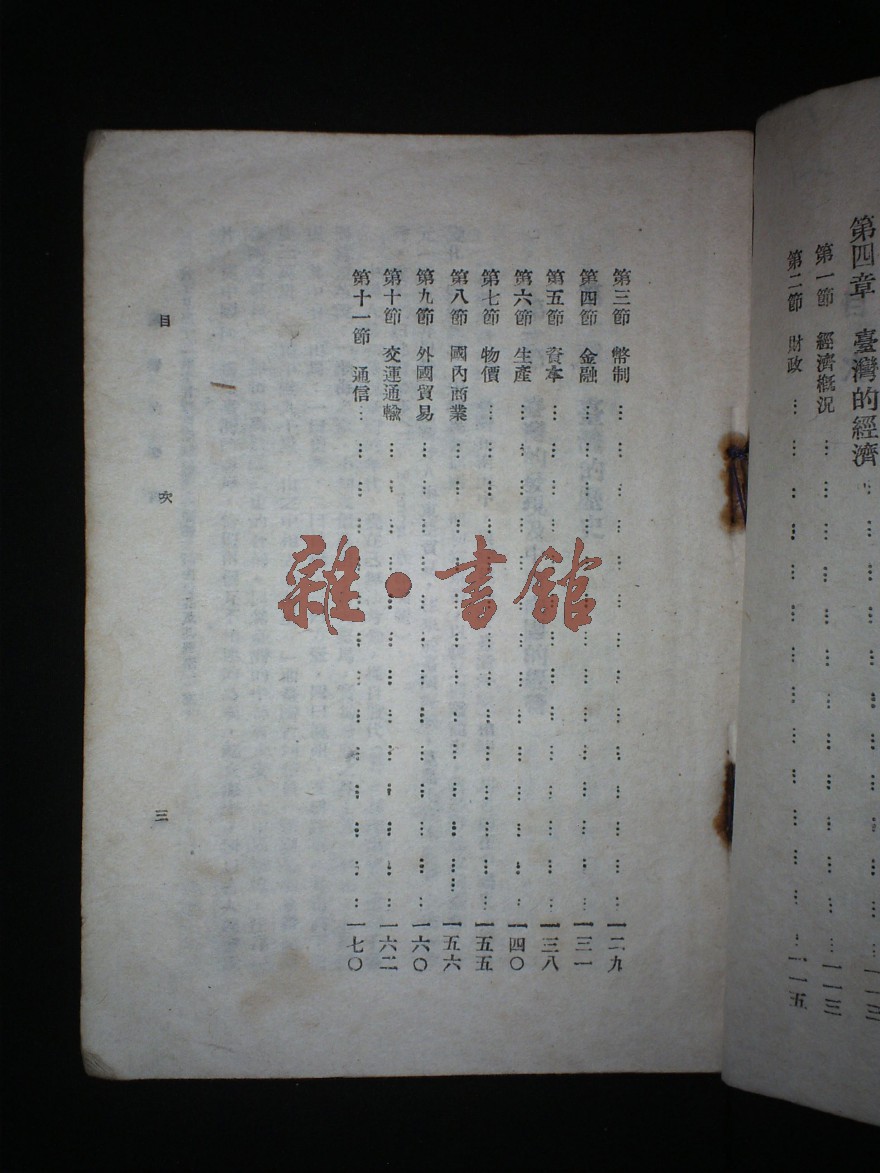 第四章 臺灣的經濟……………………………一一三
第一節 經濟概況……………………………一一三
第二節 財政……………………………一一五
第三節 幣制……………………………一二九
第四節 金融……………………………一三一
第五節 資本……………………………一三八
第六節 生產……………………………一四〇
第七節 物價……………………………一五五
第八節 國內商業……………………………一五六
第九節 外國貿易……………………………一六〇
第十節 交運通輸……………………………一六二
第十一節 通信……………………………一七〇
目次 三
雜·書館